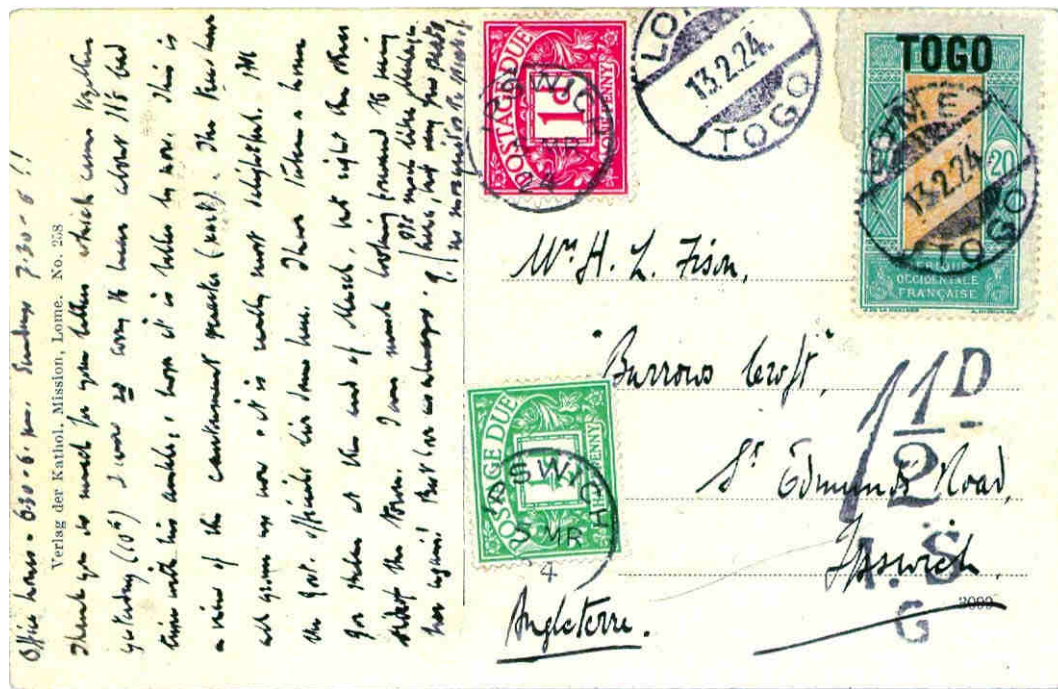 Office hours - 6.30 - 6. pm. Sundays 7.30 - 6 !!
Verlag der Kathol. Mission, Lome. No. 258
Thank you so much for your letter which came together
yesterday (10th) I was so sorry to hear about H's bad
time with his ankle, & hope it is better by now. This is
a view of the cantonment quarter (part). The trees have
all grown up now & it is really most delightful. All
the Govt. officials live down here. I have taken a house
for Helen at the end of March, but right the other
side of the town. I am much looking forward to being
here again! But no
POSTAGE DUE
1d
ONE PENNY
IPSWICH
MR
24
LOME
13.2.24
TOGO
TOGO
20
20
LOME
13.2.24
TOGO
AFRIQUE
OCCIDENTALE
FRANÇAISE
Mrs H. L. Fison,
"Burrows Croft",
St Edmunds Road,
Ipswich
Angleterre.
POSTAGE DUE
½d
PENNY
IPSWICH
5 MR
4
1½D
A.S
G
2099